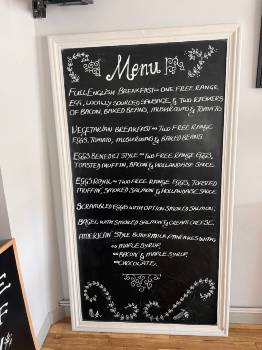 Menu
Full English Breakfast - one free range
egg, locally sourced sausage, & two rashers
of bacon, baked beans, mushrooms & tomato
Vegetarian Breakfast - two free range
eggs, tomato, mushrooms & baked beans
Eggs Benedict Style - two free range eggs,
toasted muffin, bacon & hollandaise sauce
Eggs Royal - two free range eggs, toasted
muffin, smoked salmon & hollandaise sauce
Scrambled eggs with option smoked salmon,
Bagel with smoked salmon & cream cheese.
American style buttermilk pancakes with
- maple syrup,
- bacon & maple syrup,
- chocolate.